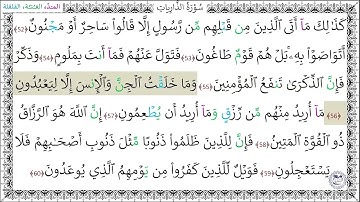 المدّ، الغنّة، القلقلة
سُورَةُ الذَّارِيَاتِ
كَذَٰلِكَ مَآ أَتَى الَّذِينَ مِن قَبْلِهِم مِّن رَّسُولٍ إِلَّا قَالُوا۟ سَاحِرٌ أَوْ مَجْنُونٌ ﴿52﴾
أَتَوَاصَوْا۟ بِهِۦ ۚ بَلْ هُمْ قَوْمٌ طَاغُونَ ﴿53﴾ فَتَوَلَّ عَنْهُمْ فَمَآ أَنتَ بِمَلُومٍ ﴿54﴾ وَذَكِّرْ
فَإِنَّ الذِّكْرَىٰ تَنفَعُ الْمُؤْمِنِينَ ﴿55﴾ وَمَا خَلَقْتُ الْجِنَّ وَالْإِنسَ إِلَّا لِيَعْبُدُونِ
﴿56﴾ مَآ أُرِيدُ مِنْهُم مِّن رِّزْقٍ وَمَآ أُرِيدُ أَن يُطْعِمُونِ ﴿57﴾ إِنَّ اللَّهَ هُوَ الرَّزَّاقُ
ذُو الْقُوَّةِ الْمَتِينُ ﴿58﴾ فَإِنَّ لِلَّذِينَ ظَلَمُوا۟ ذَنُوبًا مِّثْلَ ذَنُوبِ أَصْحَابِهِمْ فَلَا
يَسْتَعْجِلُونِ ﴿59﴾ فَوَيْلٌ لِّلَّذِينَ كَفَرُوا۟ مِن يَوْمِهِمُ الَّذِي يُوعَدُونَ ﴿60﴾